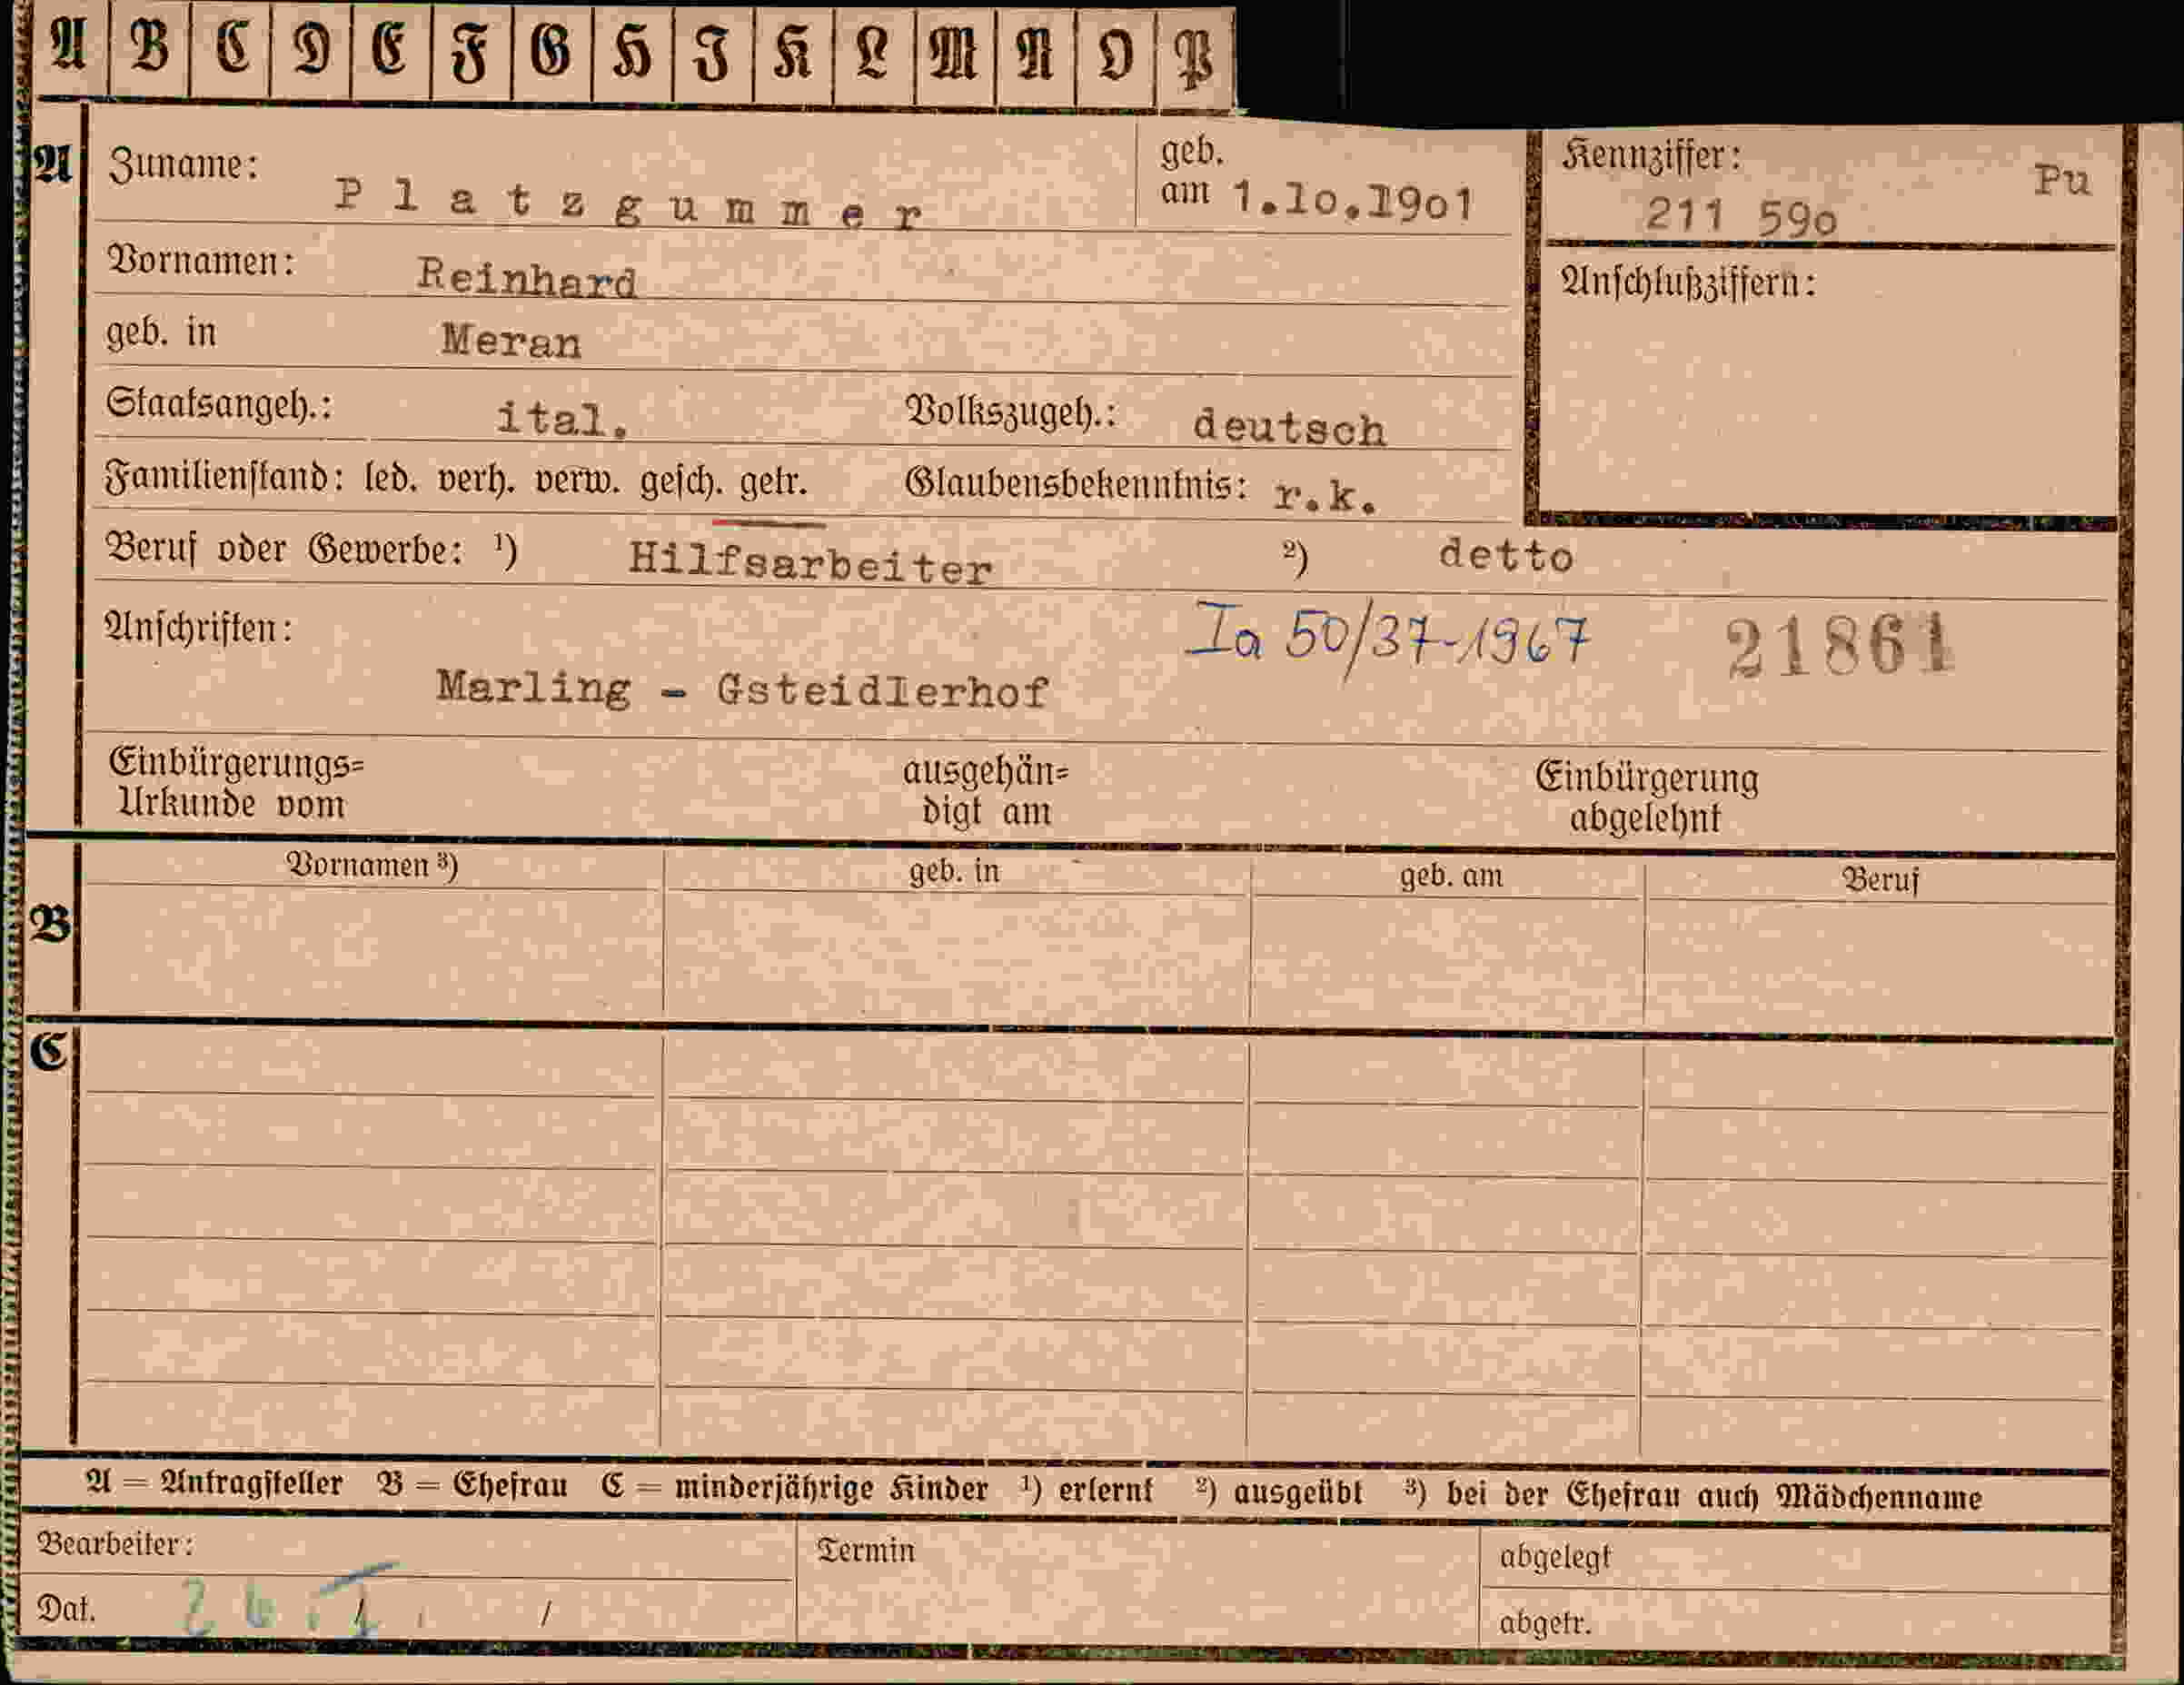 A B C D E F G H I K L M N O P
A Zuname: Platzgummer geb. am 1.10.1901 Kennziffer: 211 590 Pu
Vornamen: Reinhard Anschlußziffern:
geb. in Meran
Staatsangeh.: ital. Volkszugeh.: deutsch
Familienstand: led. verh. verw. gesch. getr. Glaubensbekenntnis: r.k.
Beruf oder Gewerbe: ¹) Hilfsarbeiter ²) detto
Anschriften: Ia 50/37-1967 21861
Marling - Gsteidlerhof
Einbürgerungs= ausgehän= Einbürgerung
Urkunde vom digt am abgelehnt
Vornamen ³) geb. in geb. am Beruf
B
C
A = Antragsteller B = Ehefrau C = minderjährige Kinder ¹) erlernt ²) ausgeübt ³) bei der Ehefrau auch Mädchenname
Bearbeiter: Termin abgelegt
Dat. abgetr.